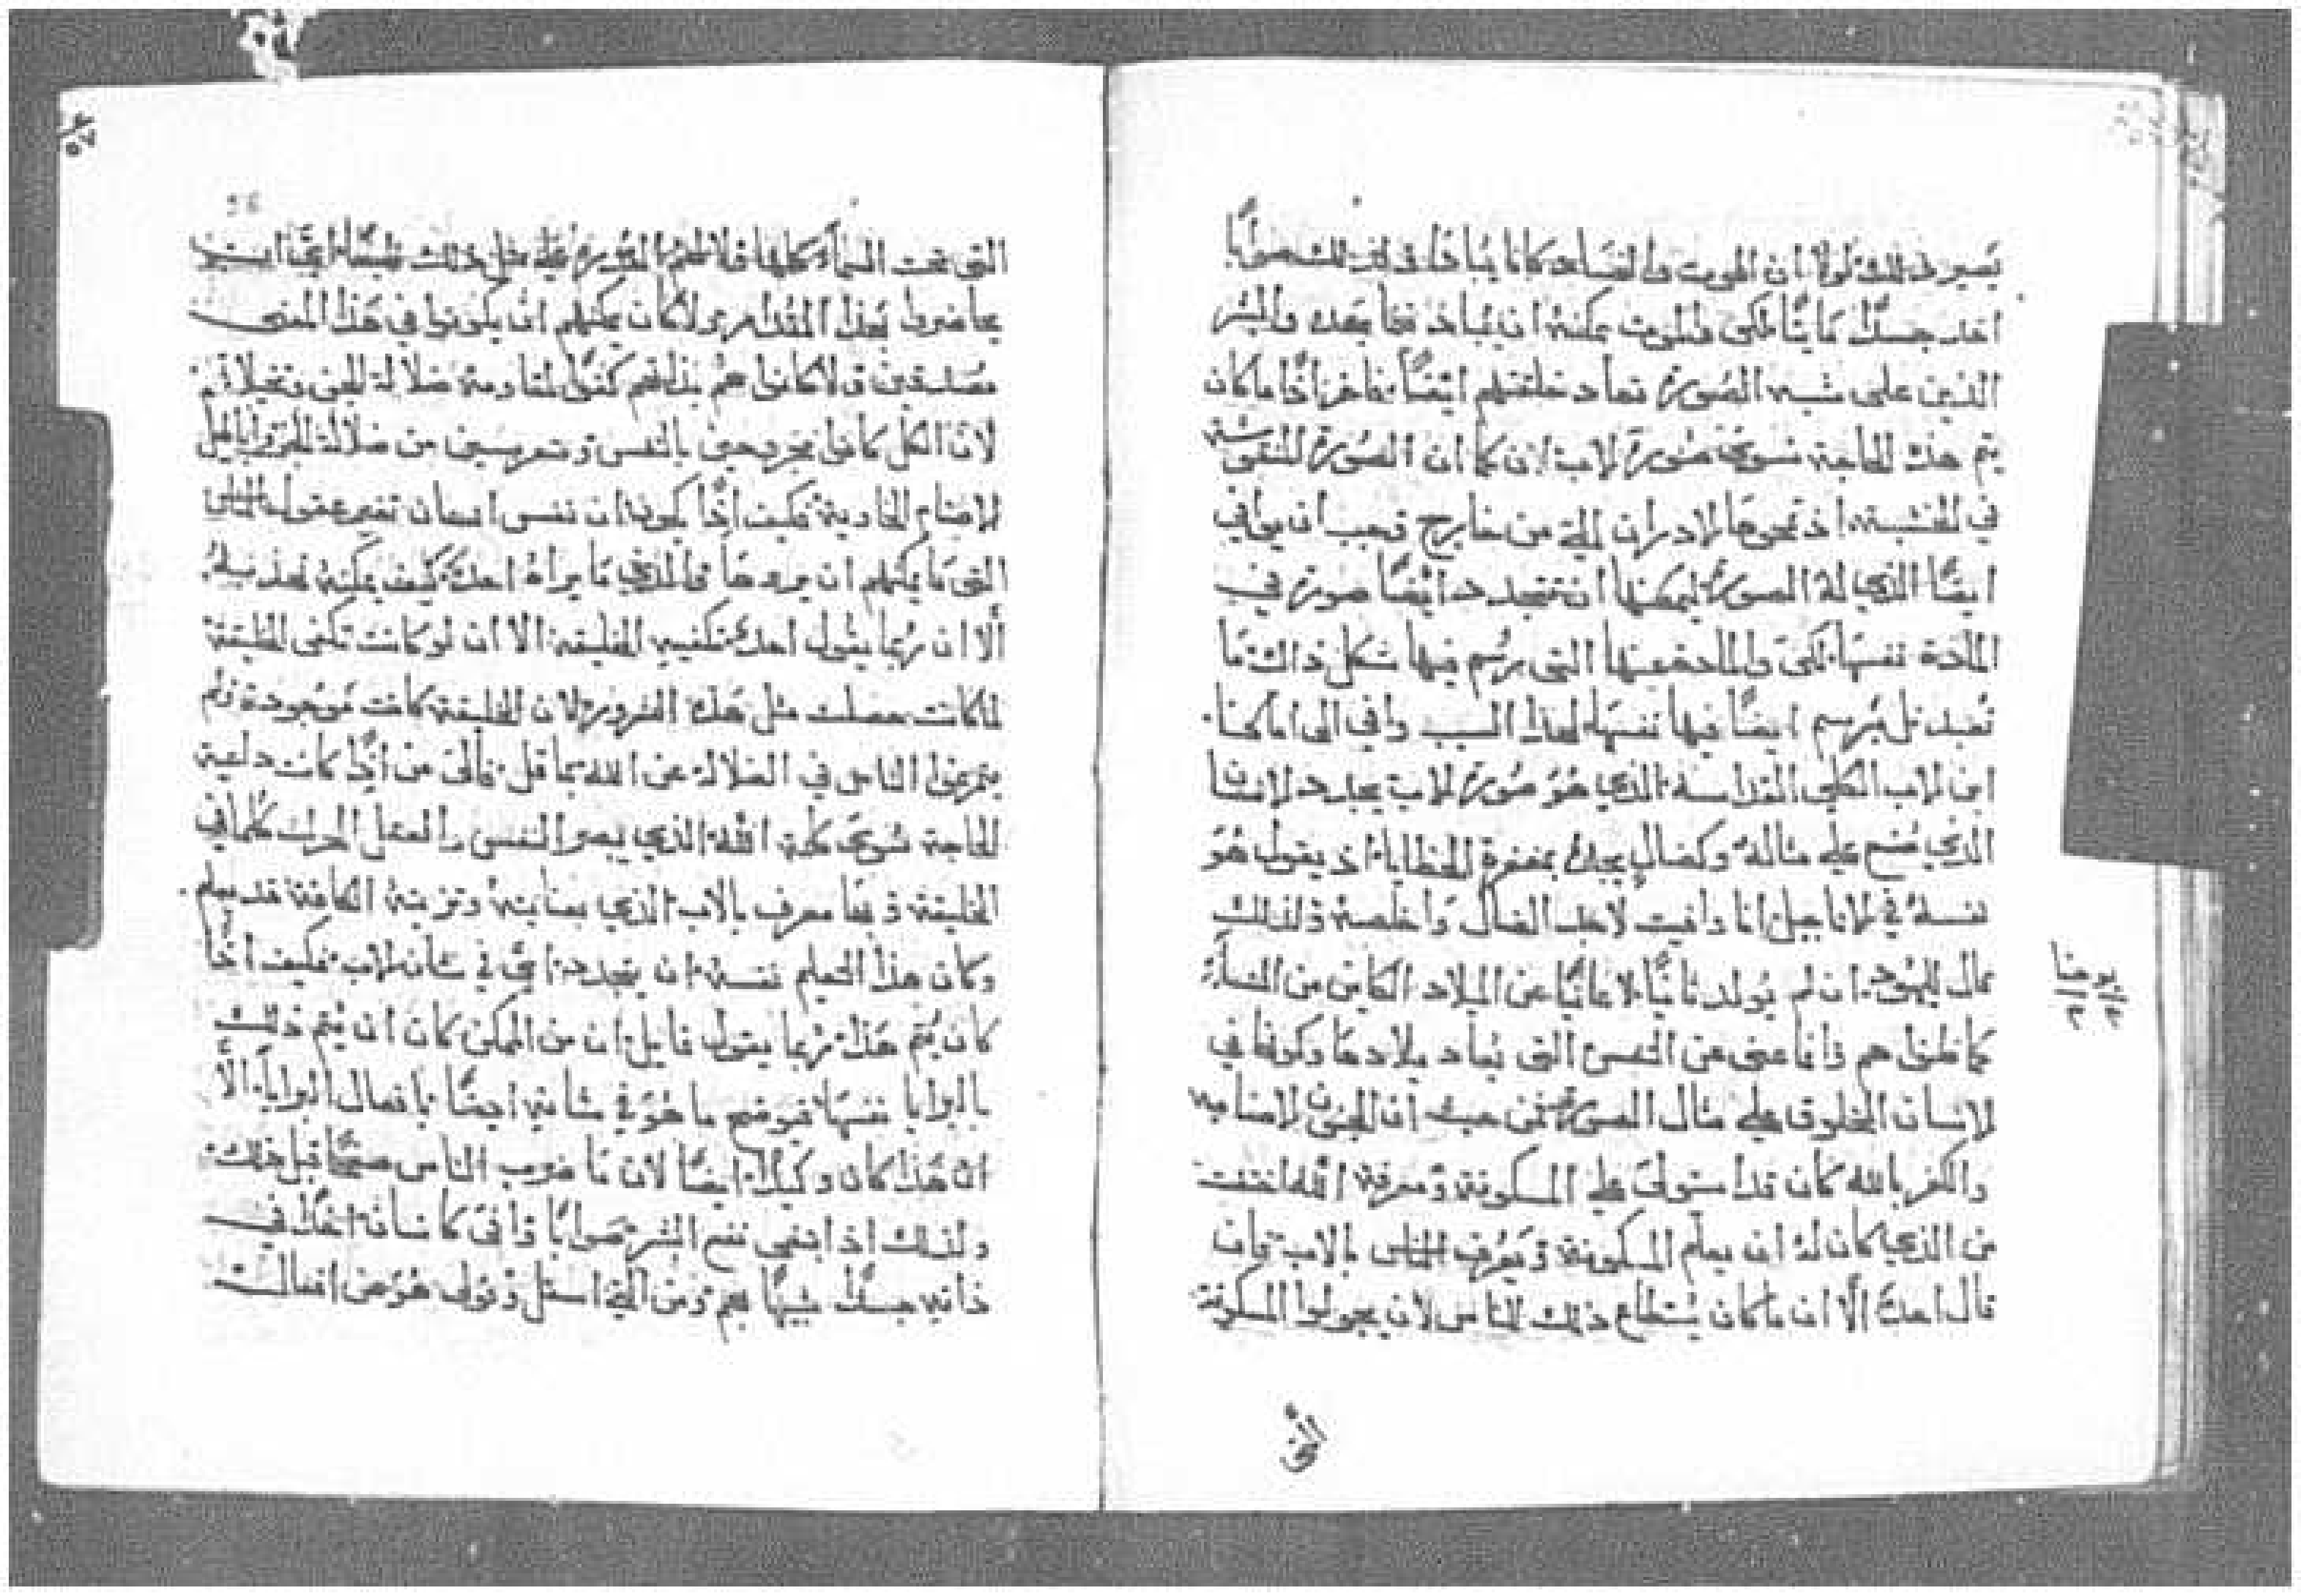 يصير ذلك لولا ان الموت والفساد كانا يبادا ولذلك صوابا
اخذ جسدا مايتا لكي والموت يمكنه ان يباد فيما بعد والبشر
الذين على شبه الصورة تعاد خلقتهم ايضا فاخر اذا ما كان
يتم هذه الحاجة سوى صورة الاب لان كما ان الصورة المنقوشة
في الخشبة اذ تمحوها الادران من خارج وجب ان يوافي
ايضا الذي له الصورة ليمكنها ان تتجدد ايضا صورة في
المادة نفسها لكي والمادة عينها التي رسم فيها شكل ذاك ما
تبعد بل يرسم ايضا فيها نفسها لهذا السبب وافى الى اماكننا
ابن الاب الكلي القداسة الذي هو صورة الاب يجدد الانسان
الذي صنع على مثاله وكضال يجده بمغفرة الخطايا اذ يقول هو
نفسه في الاناجيل انا وافيت لاجد الضال واخلصه ولذلك
قال لليهود ان لم يولد ثانيا لا عانيا عن الميلاد الكاين من النساء
كما ظنوا هم وانما عنى عن النفس التي يعاد ميلادها وكونها في
الانسان المخلوق على مثال الصورة فمن حيث ان الجنون الاصنامية
والكفر بالله كان قد استولى على المسكونة ومعرفة الله اختفت
من الذي كان له ان يعلم المسكونة ويعرف الناس بالاب فان
قال احد الا ان ما كان يستطاع ذلك للناس لان يجولوا المسكونة
يوحنا
٣ ٣
التي
٥٧
التي تحت السماء كلها فلا لهم القدرة على مثل ذلك طبيعيا
يحاضروا بهذا المقدار ولا كان يمكنهم ان يكونوا في هذا المعنى
مصدقين ولا كانوا هم بذاتهم كفوا لمقاومة ضلالة الجن وتخيلاتهم
لان الكل كانوا مجروحين بالنفس من ضلالة الجن
الاصنام فكيف اذا يكون ان نفس انسان تغير عقول الناس
التي ما يمكنهم ان يروها والذي ما يراه احد كيف يمكنه تهذيبه
الا ان ربما يقول احد تكفيه الخليقة الا ان لو كانت تكفي الخليقة
لما كانت حصلت مثل هذه الشرور لان الخليقة كانت موجودة ولم
يتمرغوا الناس في الضلالة عن الله بما قل فالى من اذا كانت داعية
الحاجة سوى كلمة الله الذي يبصر النفس والعقل المحرك كلما في
الخليقة وبها معرف بالاب الذي بعنايته وتزيينه الكافة قد يعلم
وكان هذا التعليم نفسه ان يتجدد في شان الاب فكيف اذا
كان يتم هذا ربما يقول قايل ان من الممكن كان ان يتم ذلك
بالبرايا نفسها فيوضح ما هو في شانه ايضا بافعال البرايا الا
ان هذا كان وكيدا ايضا لان ما ضرب الناس قبل ذلك
ولذلك اذ ابتغى نفع البشر صوابا وافى كانسان اخذا في
ذاته جسدا شبيها بهم ومن اسفل ونقول هو من افعال